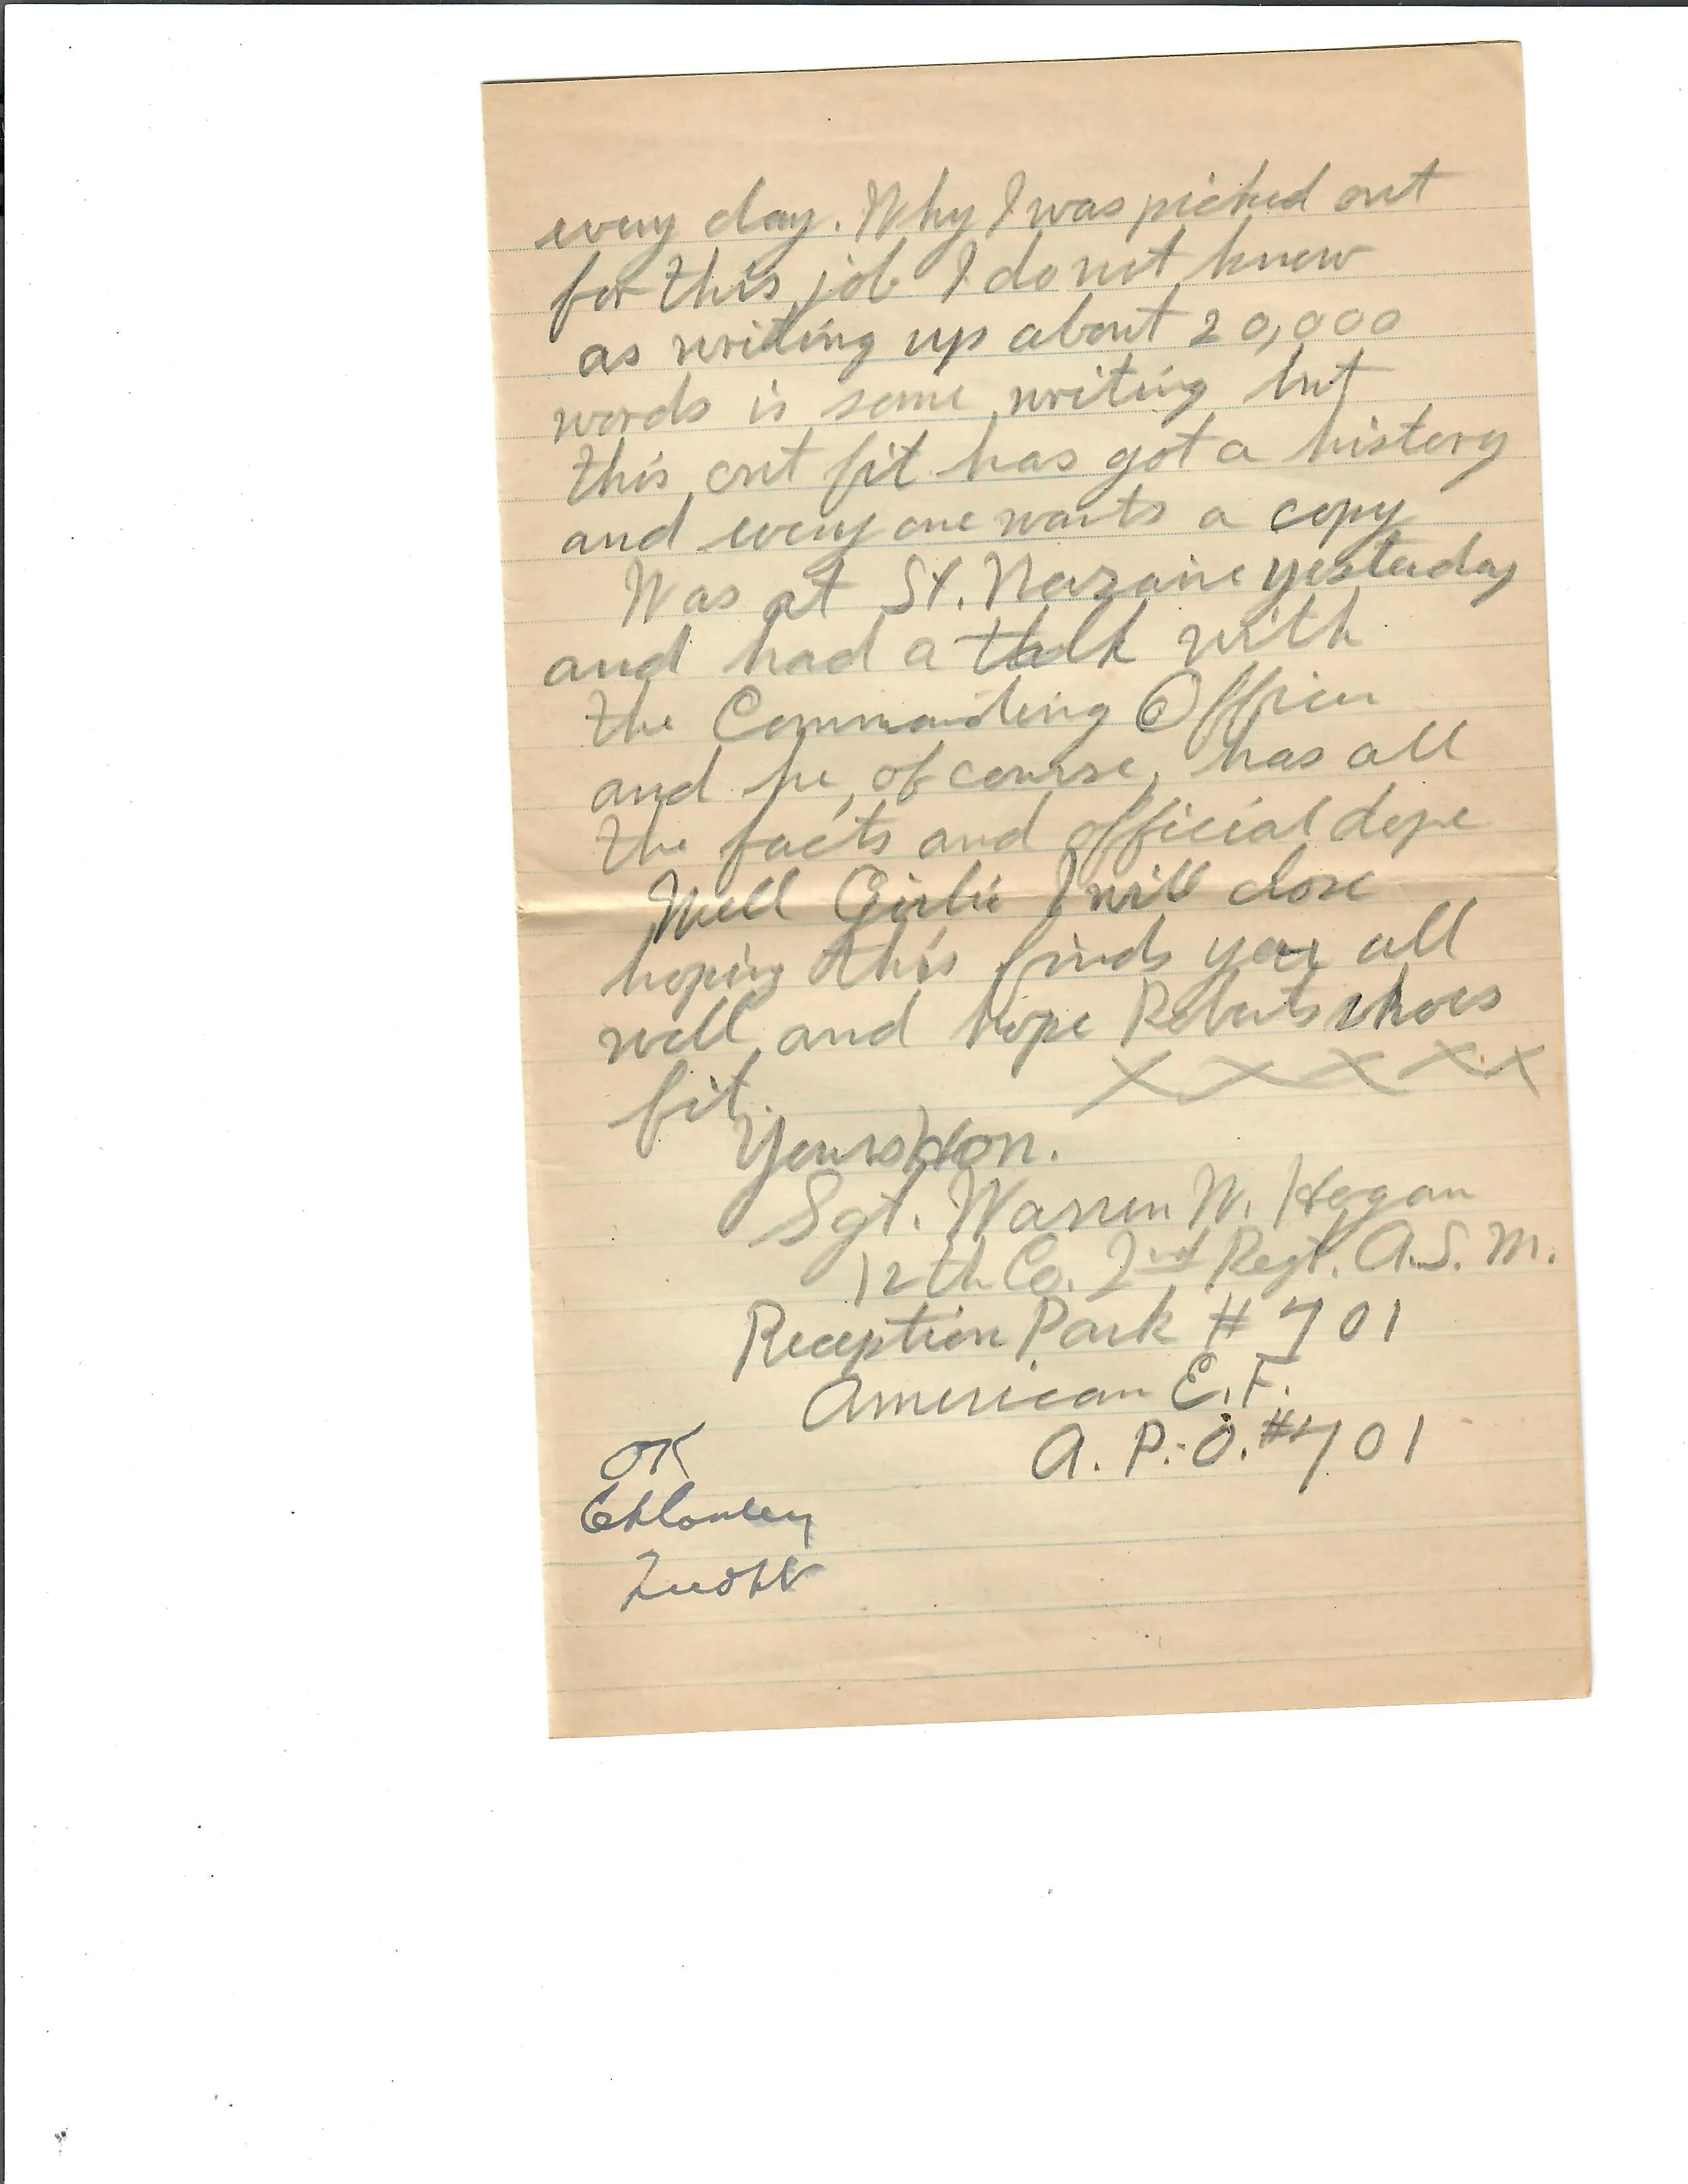 every day. Why I was picked out
for this job I do not know
as writing up about 20,000
words is some writing but
this out fit has got a history
and every one wants a copy
Was at St. Nazaire yesterday
and had a talk with
the Commanding Officer
and he, of course, has all
the facts and official dope
Well Girlie I will close
hoping this finds you all
well and hope Roberts shoes
fit.
X X X X X
Yours Hon.
Sgt. Warren W. Hogan
12th Co. 2nd Regt. A.S.M.
Reception Park # 701
American E.F.
A.P.O. #701
OK